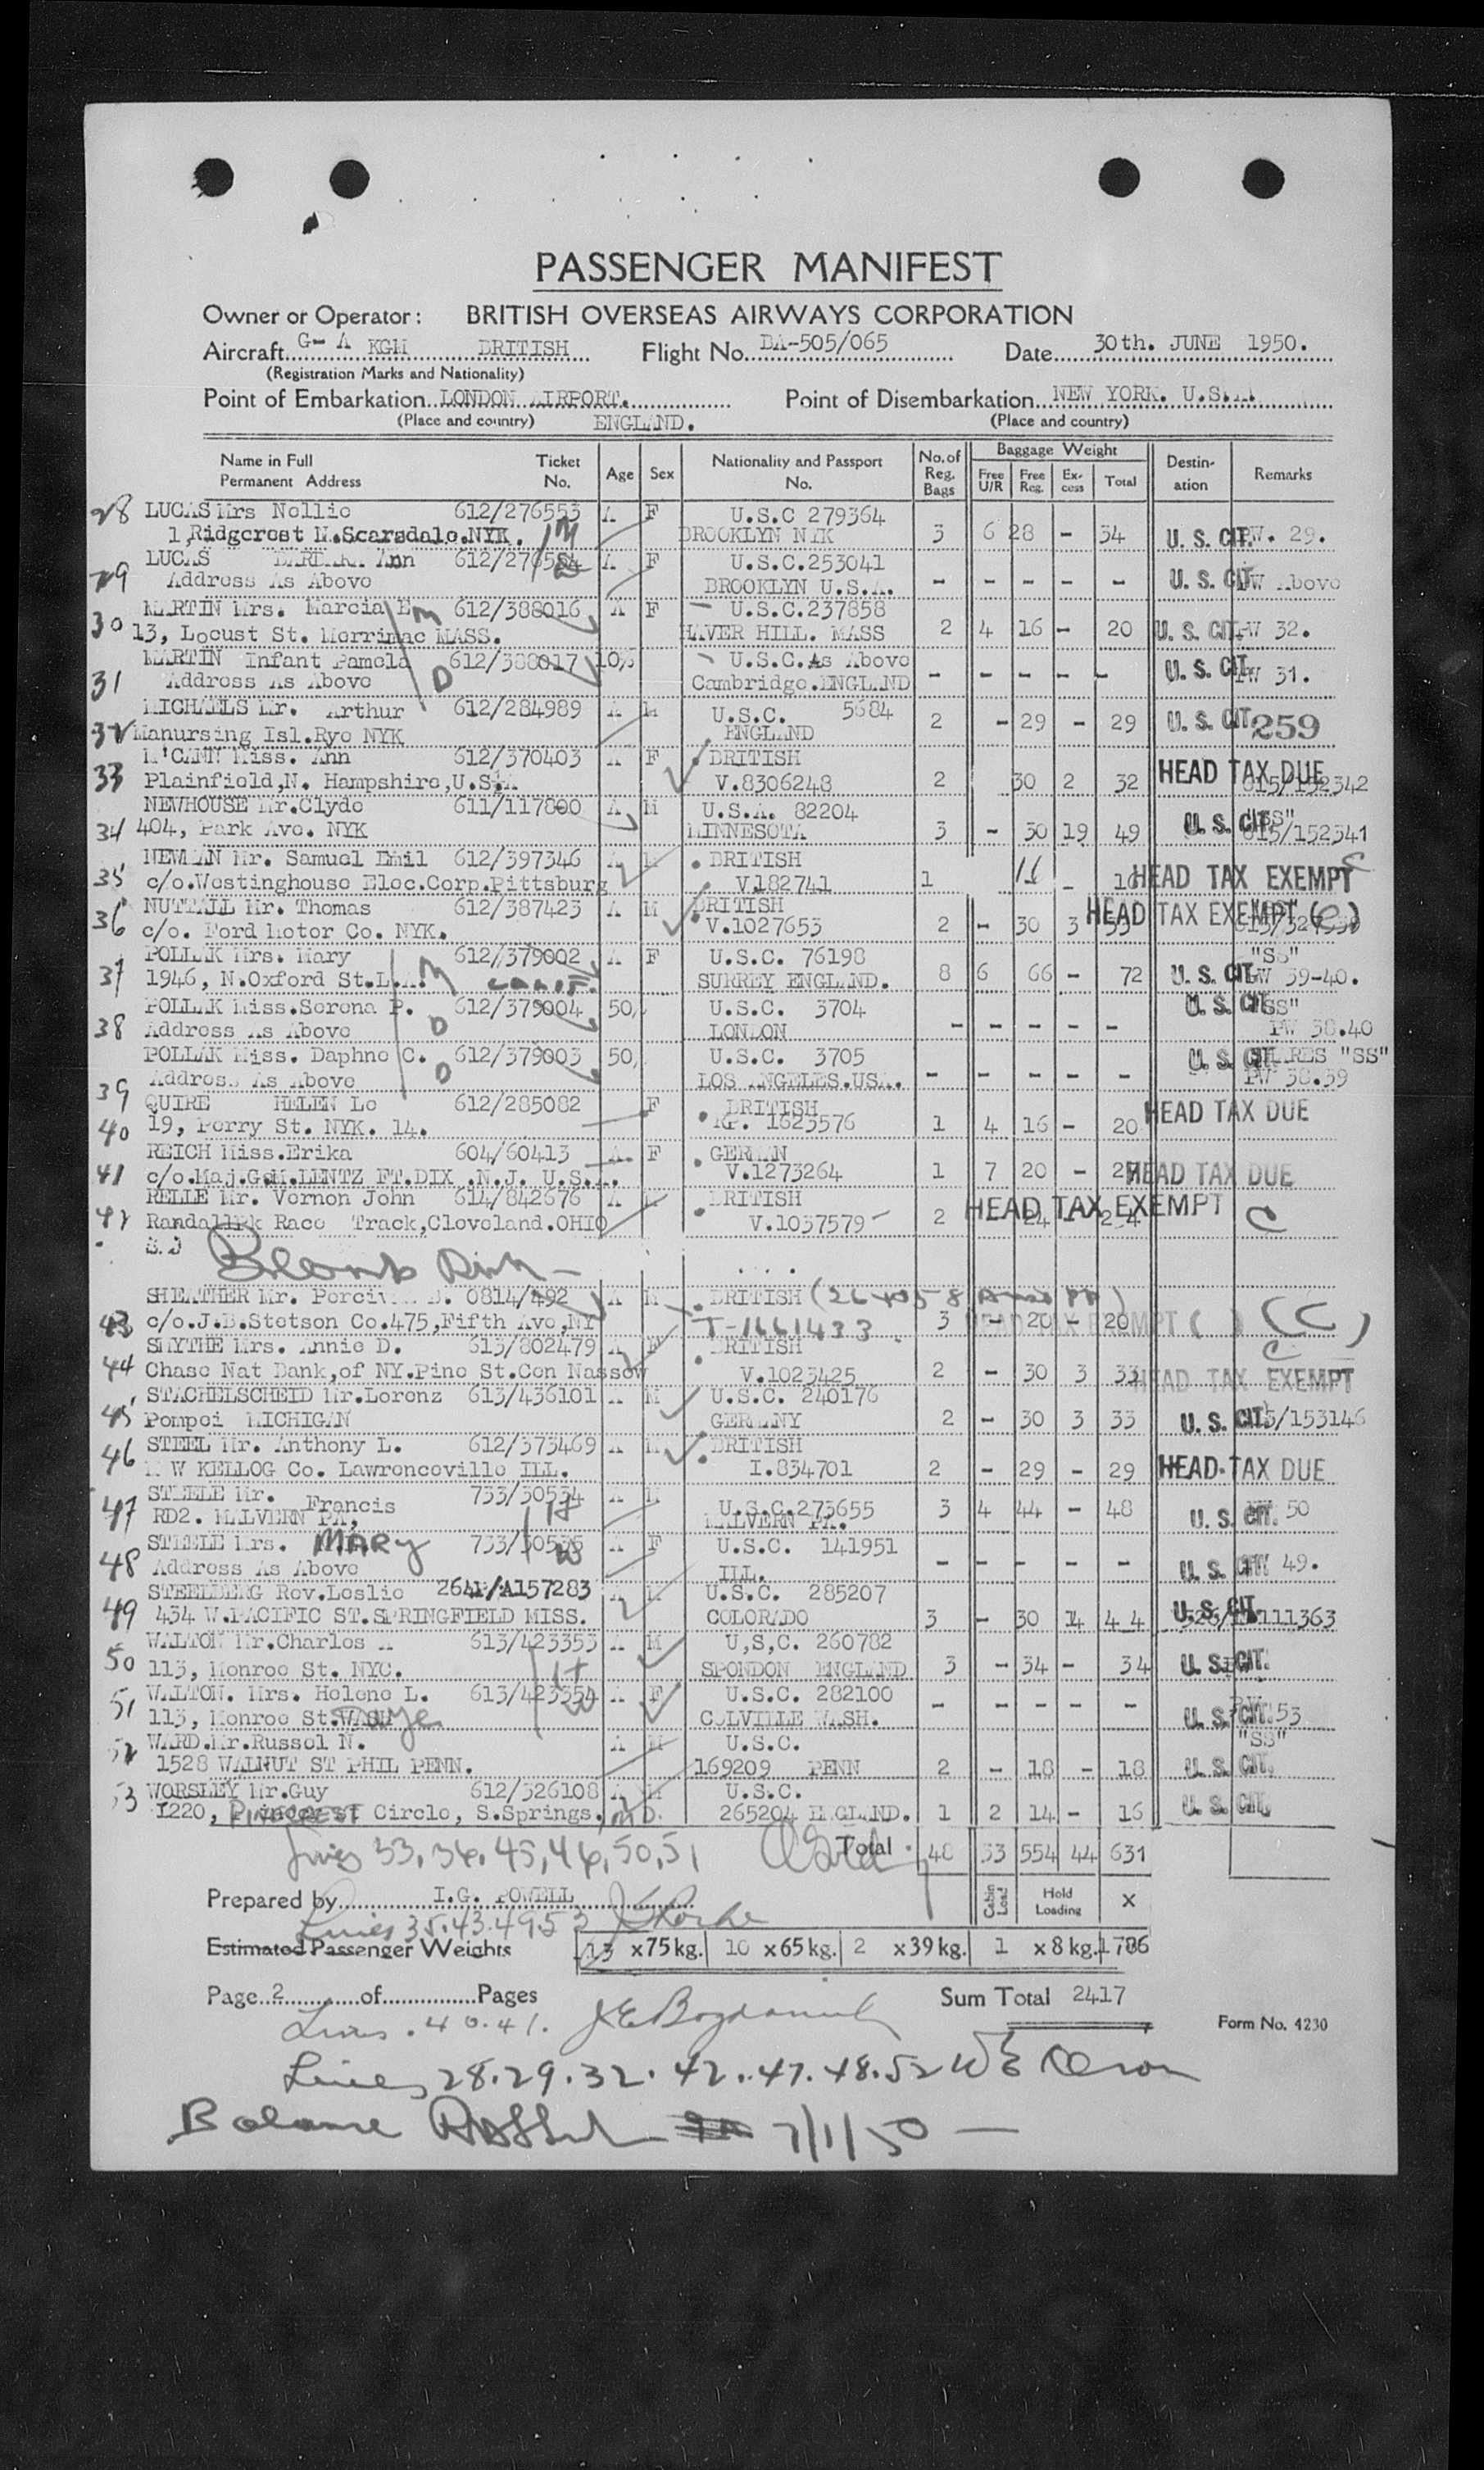 PASSENGER MANIFEST
Owner or Operator: BRITISH OVERSEAS AIRWAYS CORPORATION
Aircraft G- A KGM BRITISH Flight No. BA-505/065 Date 30th. JUNE 1950.
(Registration Marks and Nationality)
Point of Embarkation LONDON AIRPORT. Point of Disembarkation NEW YORK. U.S.A.
(Place and country) ENGLAND. (Place and country)
Name in Full Ticket Age Sex Nationality and Passport No. of Baggage Weight Destin- Remarks
Permanent Address No. No. Reg. Bags Free U/R Free Reg. Ex- cess Total ation
28 LUCAS Mrs Nellie 612/276553 A F U.S.C 279364
1, Ridgecrest N. Scarsdale. NYK. BROOKLYN NYK 3 6 28 - 34 U. S. CIT. PW. 29.
LUCAS BARBARA Ann A F U.S.C.253041
29 Address As Above BROOKLYN U.S.A. - - - - - U. S. CIT. PW Above
MARTIN Mrs. Marcia E. M 612/388016 A F - U.S.C.237858
30 13, Locust St. Merrimac MASS. HAVER HILL. MASS 2 4 16 - 20 U. S. CIT. PW 32.
MARTIN Infant Pamela 612/388017 10% U.S.C. As Above
31 Address As Above D Cambridge. ENGLAND - - - - - U. S. CIT. PW 31.
MICHAELS Mr. Arthur 612/284989 A M U.S.C. 5684
32 Manursing Isl. Rye NYK ENGLAND 2 - 29 - 29 U. S. CIT. 259
M'CANN Miss. Ann 612/370403 A F BRITISH
33 Plainfield, N. Hampshire, U.S.A V.8306248 2 30 2 32 HEAD TAX DUE 615/152342
NEWHOUSE Mr. Clyde 611/117800 A M U.S.A. 82204 "SS"
34 404, Park Ave. NYK MINNESOTA 3 - 30 19 49 U. S. CIT. 615/152341
NEWMAN Mr. Samuel Emil 612/397346 A M BRITISH
35 c/o. Westinghouse Elec. Corp. Pittsburg V.182741 1 16 - 16 HEAD TAX EXEMPT C
NUTTALL Mr. Thomas 612/387423 A M BRITISH
36 c/o. Ford Motor Co. NYK. V.1027653 2 - 30 3 33 HEAD TAX EXEMPT (C)
POLLAK Mrs. Mary 612/379002 A F U.S.C. 76198 "SS"
37 1946, N. Oxford St. L.A. M SURREY ENGLAND. 8 6 66 - 72 U. S. CIT. PW 39-40.
POLLAK Miss. Serena P. 612/379004 50 U.S.C. 3704 U. S. CIT. "SS"
38 Address As Above D LONDON - - - - - PW 38.40
POLLAK Miss. Daphne C. 612/379003 50 U.S.C. 3705 U. S. CIT. SHARES "SS"
39 Address As Above D LOS ANGELES. USA. - - - - - PW 38.39
QUIRE HELEN Le 612/285082 F BRITISH HEAD TAX DUE
40 19, Perry St. NYK. 14. 1623576 1 4 16 - 20
REICH Miss. Erika 604/60413 A. F GERMAN
41 c/o. Maj. G.M. LENTZ FT. DIX .N.J. U.S.A. V.1273264 1 7 20 - 27 HEAD TAX DUE
RELLE Mr. Vernon John 614/842676 A M BRITISH
42 Randall Race Track, Cleveland. OHIO V.1037579 2 - 24 - 24 HEAD TAX EXEMPT C
SHEATHER Mr. 0814/492 A M BRITISH
43 c/o. J.B. Stetson Co. 475, Fifth Ave, NY T-1661433 3 - 20 - 20 HEAD TAX EXEMPT (C)
SMYTHE Mrs. Annie D. 613/802479 A F BRITISH C
44 Chase Nat Bank, of NY. Pine St. Cen Nassew V.1023425 2 - 30 3 33 HEAD TAX EXEMPT
STACHELSCHEID Mr. Lorenz 613/436101 A M U.S.C. 240176
45 Pompei MICHIGAN GERMANY 2 - 30 3 33 U. S. CIT. /153146
STEEL Mr. Anthony L. 612/373469 A M BRITISH
46 M W KELLOG Co. Lawrenceville ILL. I.834701 2 - 29 - 29 HEAD TAX DUE
STEELE Mr. Francis 733/30534 A M U.S.C.273655 3 4 44 - 48 50
47 RD2. MALVERN PA, H MALVERN PA. U. S. CIT.
STEELE Mrs. MARY 733/30535 A F U.S.C. 141951
48 Address As Above W ILL. - - - - - U. S. CIT. PW 49.
STEELBERG Rev. Leslie A157283 A M U.S.C. 285207
49 434 W. PACIFIC ST. SPRINGFIELD MISS. COLORADO 3 - 30 14 44 U. S. CIT. 111363
WALTON Mr. Charles A 613/423353 A M U,S,C. 260782
50 113, Monroe St. NYC. H SPONDON ENGLAND 3 - 34 - 34 U. S. CIT.
51 WALTON. Mrs. Helene L. 613/423354 A F U.S.C. 282100 - - - - - 53
113, Monroe St. W COLVILLE WASH. U. S. CIT.
52 WARD. Mr. Russel N. A M U.S.C. "SS"
1528 WALNUT ST PHIL PENN. 169209 PENN 2 - 18 - 18 U. S. CIT.
53 WORSLEY Mr. Guy 612/326108 A M U.S.C.
1220, PINECREST Circle, S. Springs. MD. 265204 ENGLAND. 1 2 14 - 16 U. S. CIT.
Lines 33, 36, 45, 46, 50, 51 Total 48 33 554 44 631
Prepared by I.G. POWELL Cabin Load Hold Loading X
Lines 35.43.49.53
Estimated Passenger Weights 13 x 75 kg. 10 x 65 kg. 2 x 39 kg. 1 x 8 kg. 1786
Page 2 of Pages Sum Total 2417
Lines . 40.41. Form No. 4230
Lines 28.29.32.42.47.48.52 W E Olson
Balance 7/1/50 -